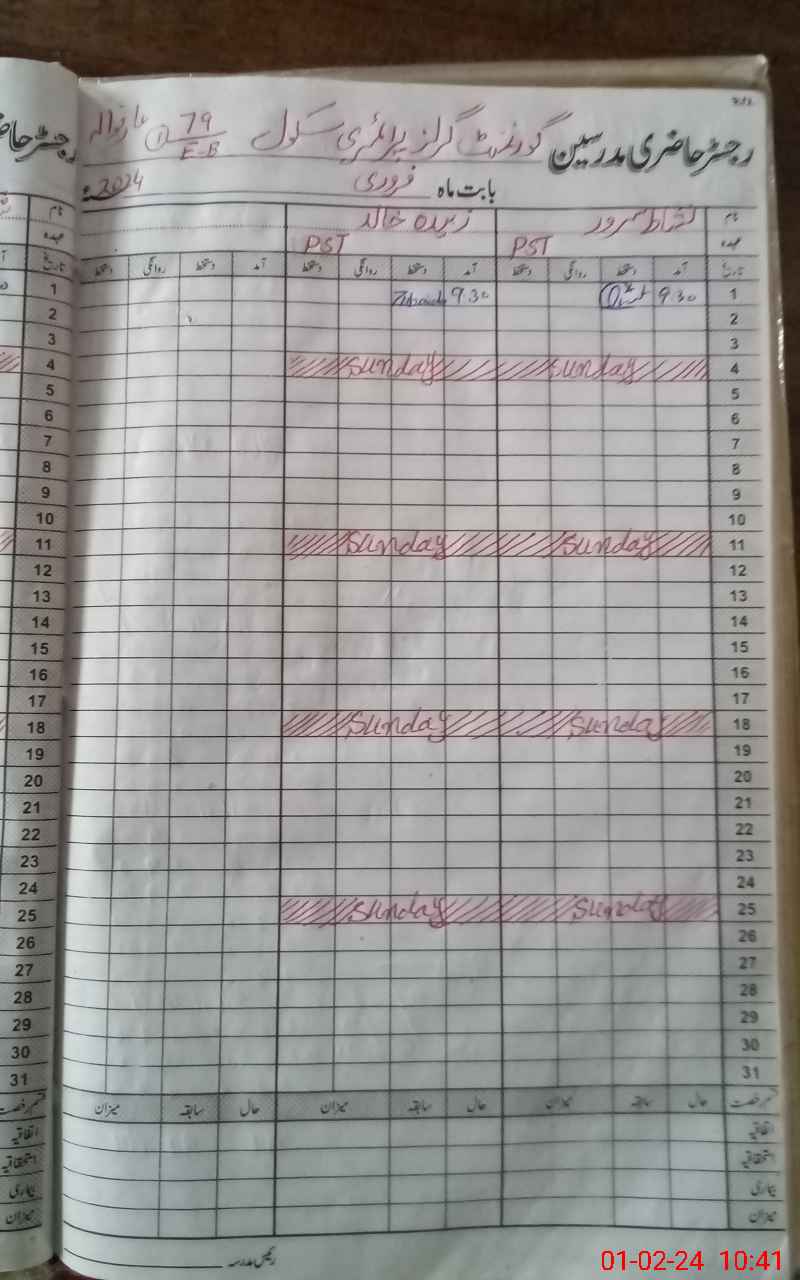 رجسٹر حاضری مدرسین گورنمنٹ گرلز پرائمری سکول 79/E-B عارفوالہ
بابت ماہ فروری 2024ء
نام نشاط سرور زبیدہ خالد
عہدہ PST PST
تاریخ آمد دستخط روانگی دستخط آمد دستخط روانگی دستخط آمد دستخط روانگی دستخط
1 9.30 9.30
2
3
4 Sunday Sunday
5
6
7
8
9
10
11 Sunday Sunday
12
13
14
15
16
17
18 Sunday Sunday
19
20
21
22
23
24
25 Sunday Sunday
26
27
28
29
30
31
قسم رخصت حال سابقہ میزان حال سابقہ میزان حال سابقہ میزان
اتفاقیہ
استحقاقیہ
بیماری
میزان
رئیس مدرسہ
01-02-24 10:41